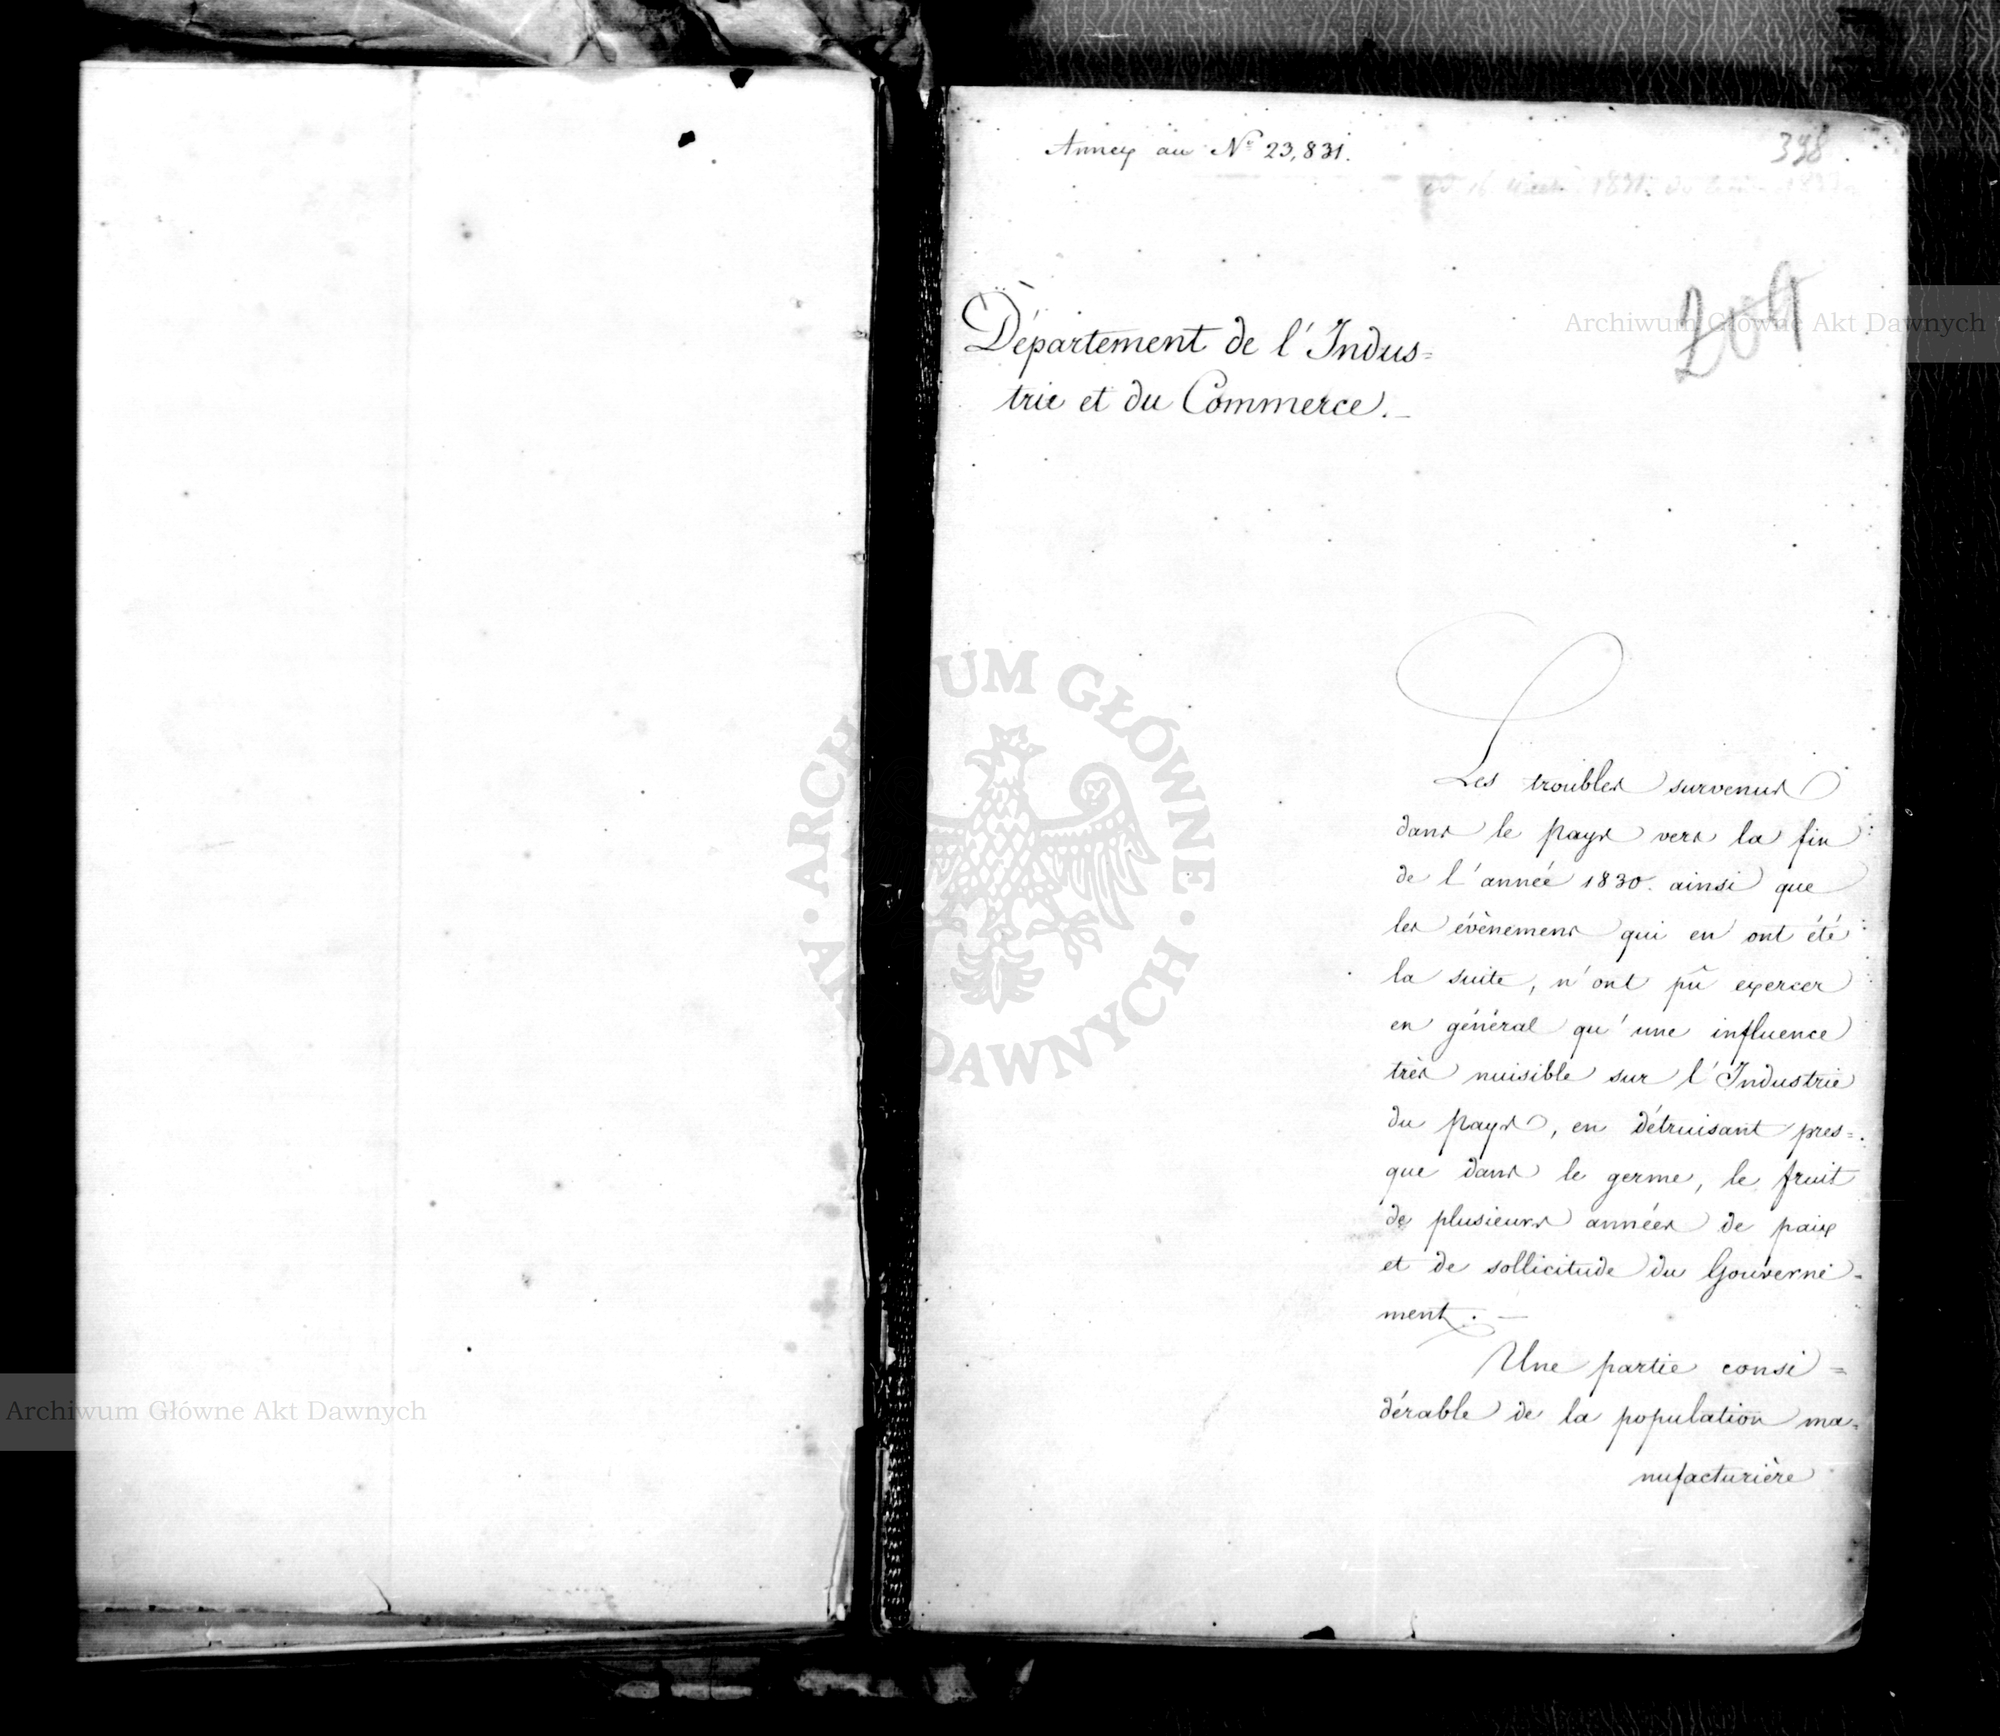 Annex au Nº 23,831.
398
209
Département de l'Indus=
trie et du Commerce.
Les troubles survenus
dans le pays vers la fin
de l'année 1830. ainsi que
les événemens qui en ont été
la suite, n'ont pû exercer
en général qu'une influence
très nuisible sur l'Industrie
du pays, en détruisant pres=
que dans le germe, le fruit
de plusieurs années de paix
et de sollicitude du Gouverne-
ment.
Une partie consi=
dérable de la population ma=
nufacturière
Archiwum Główne Akt Dawnych
ARCHIWUM GŁÓWNE
AKT DAWNYCH
Archiwum Główne Akt Dawnych